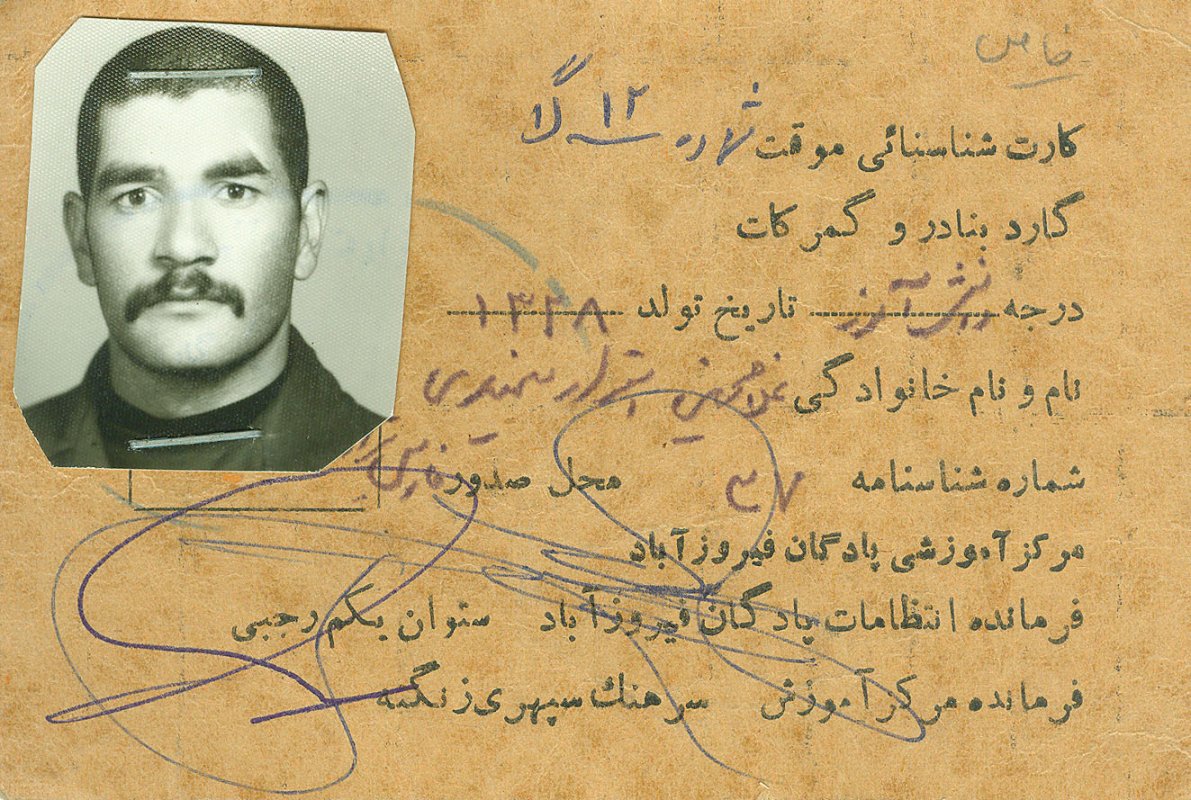 خاص
کارت شناسنائی موقت شماره ۱۲
گارد بنادر و گمرکات
درجه دانش آموز تاریخ تولد ۱۳۲۸
نام و نام خانوادگی غلامحسین
شماره شناسنامه ۳۷ محل صدور فارس
مرکز آموزشی پادگان فیروزآباد
فرمانده انتظامات پادگان فیروزآباد ستوان یکم رجبی
فرمانده مرکز آموزش سرهنك سپهری زنگنه